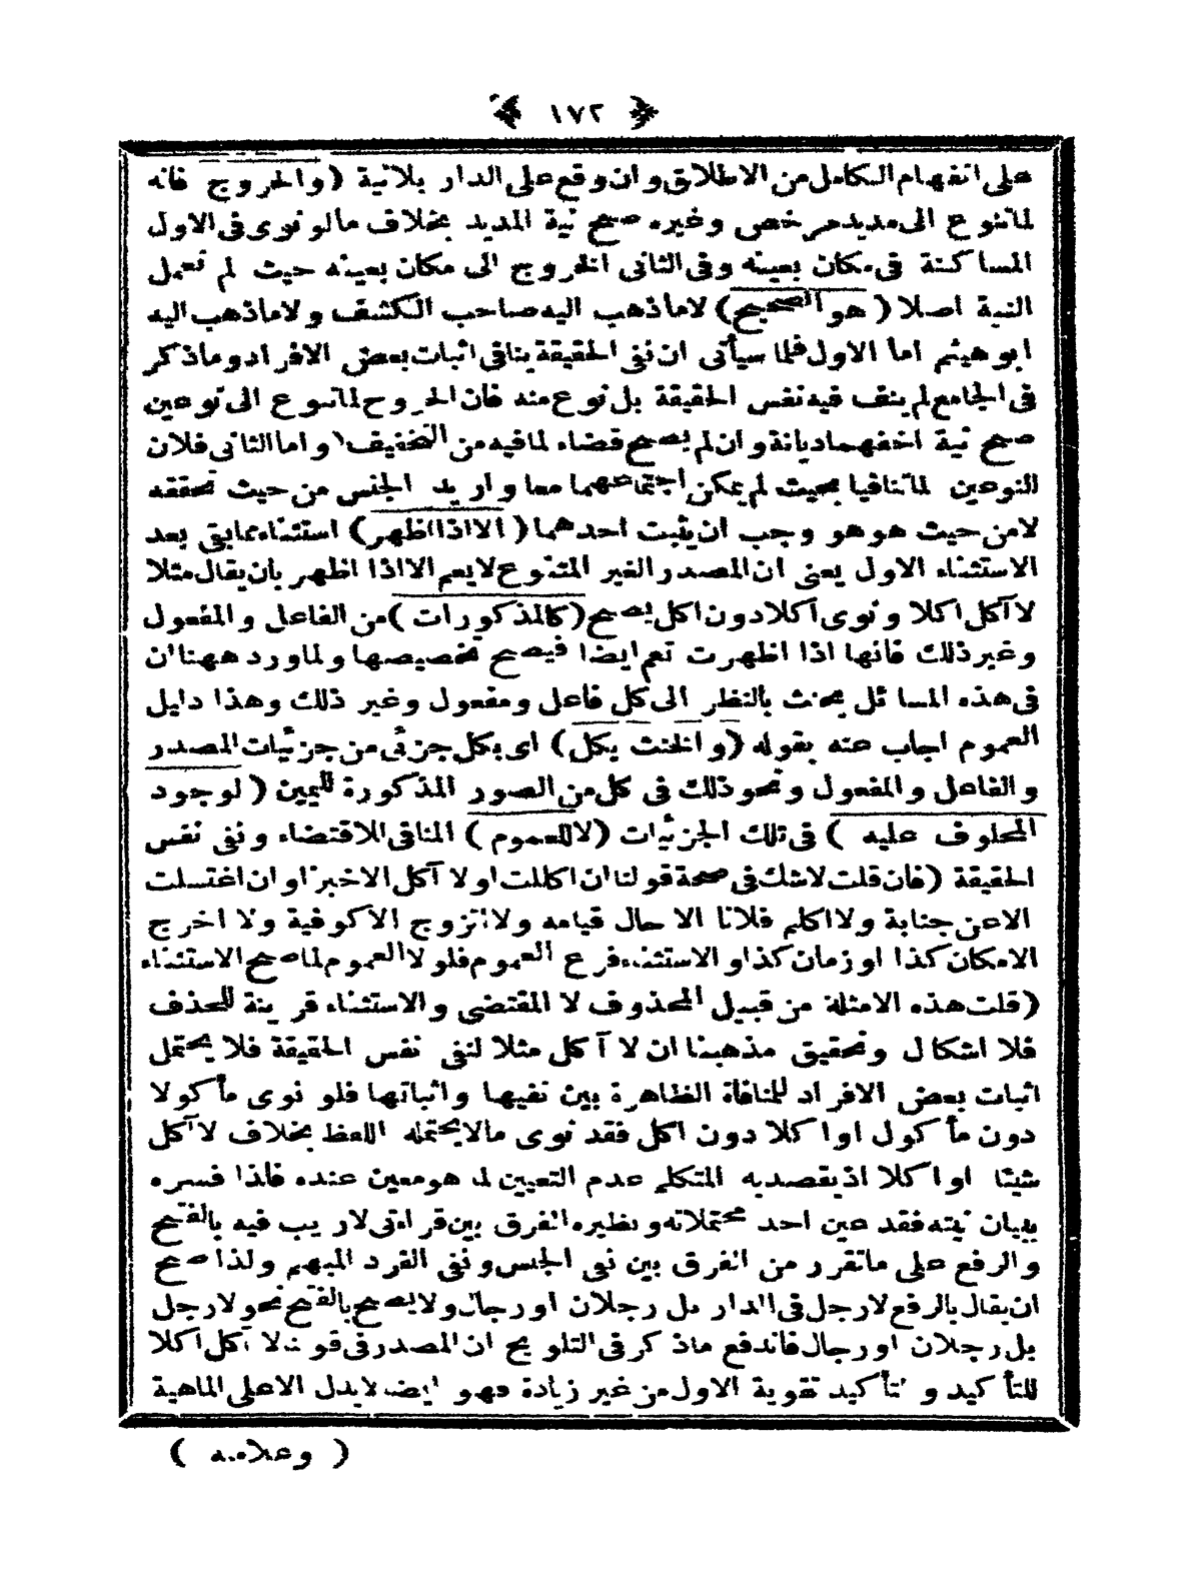 ١٧٢
على انفهام الكامل من الاطلاق وان وقع على الدار بلانية (والخروج فانه
لما تنوع الى مديد مرخص وغيره صح نية المديد بخلاف مالو نوى فى الاول
المساكنة فى مكان بعينه وفى الثانى الخروج الى مكان بعينه حيث لم تعمل
النية اصلا (هو الصحيح) لاماذهب اليه صاحب الكشف ولاماذهب اليه
ابو هيثم اما الاول فلما سيأتى ان نفى الحقيقة ينافى اثبات بعض الافراد وماذكر
فى الجامع لم ينف فيه نفس الحقيقة بل نوع منه فان الخروج لما تنوع الى نوعين
صح نية اخفهما ديانة وان لم يصح قضاء لما فيه من التخفيف واما الثانى فلان
النوعين لما تنافيا بحيث لم يمكن اجتماعهما معا واريد الجنس من حيث تحققه
لامن حيث هو هو وجب ان يثبت احدهما (الا اذا اظهر) استثناء مما بقى بعد
الاستثناء الاول يعنى ان المصدر الغير المتنوع لايعم الا اذا اظهر بان يقال مثلا
لا آكل اكلا ونوى اكلا دون اكل يصح (كالمذكورات) من الفاعل والمفعول
وغير ذلك فانها اذا اظهرت تعم ايضا فيصح تخصيصها ولما ورد ههنا ان
فى هذه المسائل يحنث بالنظر الى كل فاعل ومفعول وغير ذلك وهذا دليل
العموم اجاب عنه بقوله (والحنث بكل) اى بكل جزئى من جزئيات المصدر
والفاعل والمفعول ونحو ذلك فى كل من الصور المذكورة لليمين (لوجود
المحلوف عليه) فى تلك الجزئيات (لا للعموم) المنافى للاقتضاء ونفى نفس
الحقيقة (فان قلت لاشك فى صحة قولنا ان اكلت او لا آكل الا خبزا وان اغتسلت
الا عن جنابة ولا اكلم فلانا الا حال قيامه ولا اتزوج الا كوفية ولا اخرج
الا مكان كذا او زمان كذا والاستثناء فرع العموم فلولا العموم لما صح الاستثناء
(قلت هذه الامثلة من قبيل المحذوف لا المقتضى والاستثناء قرينة للحذف
فلا اشكال وتحقيق مذهبنا ان لا آكل مثلا لنفى نفس الحقيقة فلا يحتمل
اثبات بعض الافراد للمنافاة الظاهرة بين نفيها واثباتها فلو نوى مأكولا
دون مأكول او اكلا دون اكل فقد نوى مالا يحتمله اللفظ بخلاف لا آكل
شيئا او اكلا اذ يقصد به المتكلم عدم التعيين لما هو معين عنده فاذا فسره
ببيان نيته فقد عين احد محتملاته ونظيره الفرق بين قراءتى لاريب فيه بالفتح
والرفع على ماتقرر من الفرق بين نفى الجنس ونفى الفرد المبهم ولذا صح
ان يقال بالرفع لارجل فى الدار بل رجلان او رجال ولا يصح بالفتح نحو لارجل
بل رجلان او رجال فاندفع ماذكر فى التلويح ان المصدر فى قولنا لا آكل اكلا
للتأكيد والتأكيد تقوية الاول من غير زيادة فهو ايضا لايدل الا على الماهية
(وعلامه)